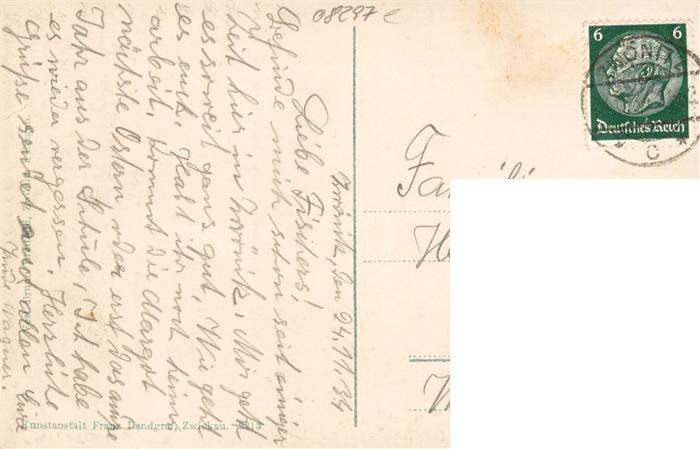 08297 e
6 6
Deutsches Reich
ZWÖNITZ
c
Zwönitz, den 24.11.34
Liebe Fischers!
Befinde mich schon seit einiger
Zeit hier in Zwönitz. Mir geht
es soweit ganz gut. Wie geht
es euch. Habt ihr noch keine
Arbeit. Kommt die Margot
nächste Ostern oder erst das andre
Jahr aus der Schule, Ich habe
es wieder vergessen. Herzliche
Grüße sendet euch allen Eure
Wagner.
Familie
Kunstanstalt Franz Landgraf, Zwickau.